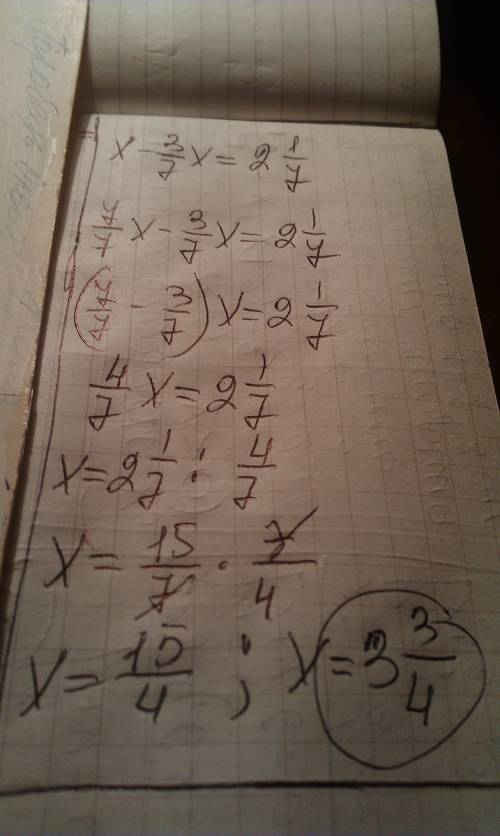 x - 3/7 x = 2 1/7
7/7 x - 3/7 x = 2 1/7
(7/7 - 3/7) x = 2 1/7
4/7 x = 2 1/7
x = 2 1/7 : 4/7
x = 15/7 · 7/4
x = 15/4 ; x = 3 3/4